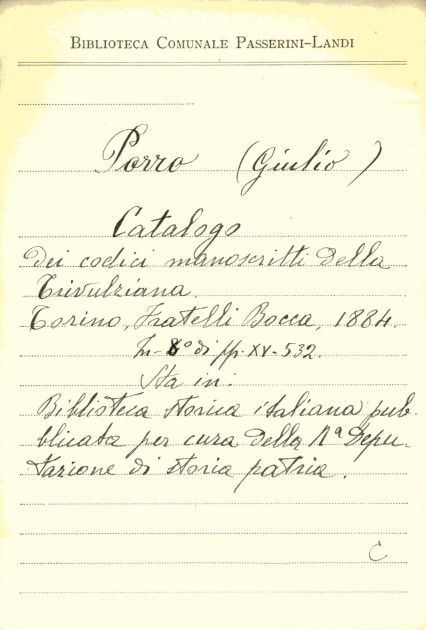 BIBLIOTECA COMUNALE PASSERINI-LANDI
Porro (Giulio)
Catalogo
dei codici manoscritti della
Trivulziana.
Torino, Fratelli Bocca, 1884.
In-8° di pp. XV-532.
Sta in:
Biblioteca storica italiana pub-
blicata per cura della Rª Depu-
tazione di storia patria.
C